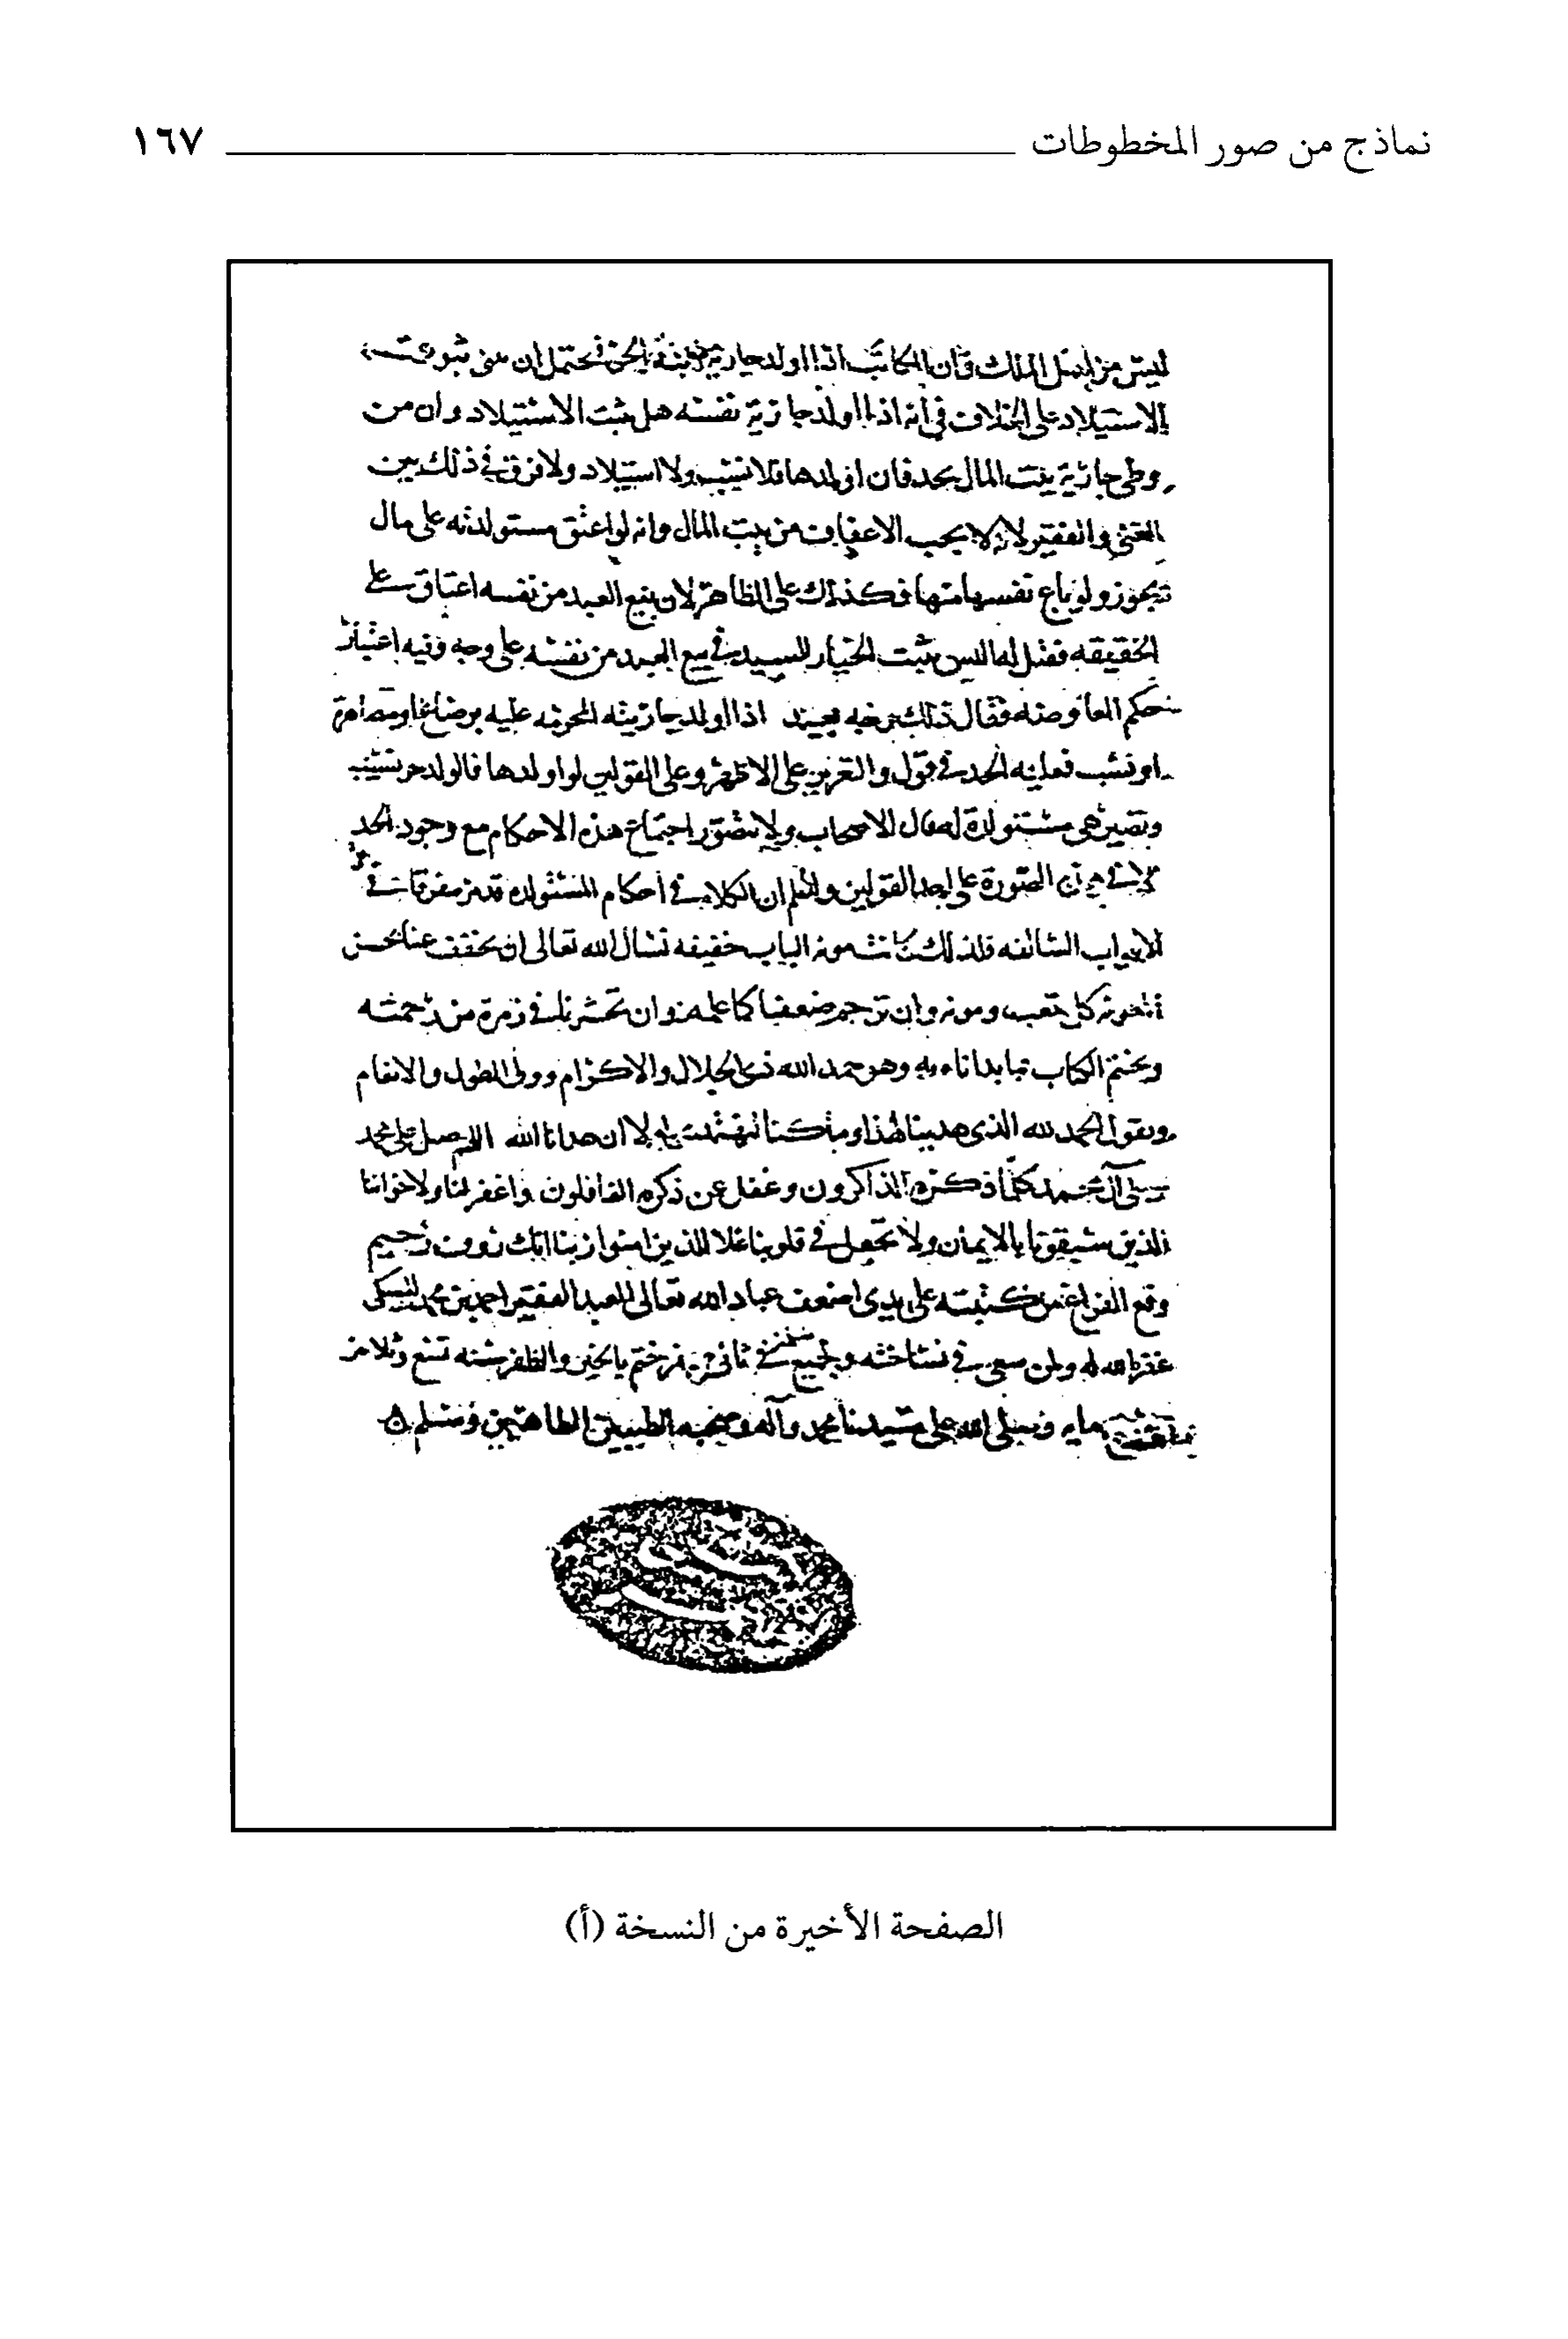 نماذج من صور المخطوطات ١٦٧
ليس من أهل الملك وان المكاتب اذا اولد جارية ابنه الحر فيحتمل ان
الاستيلاد على الخلاف في انه اذا اولد جارية نفسه هل يثبت الاستيلاد وان من
وطى جارية بيت المال يحد فان اولدها فلا نسب ولا استيلاد ولا فرق في ذلك بين
الغني والفقير لانه لا يجب الاعفاف من بيت المال وانه لو اعتق مستولدته على مال
يجوز ولو باع نفسها منها فكذلك على الظاهر لان بيع العبد من نفسه اعتاق على
الحقيقه فقيل له اليس يثبت الخيار للسيد في بيع العبد من نفسه على وجه وفيه اعتبار
حكم المعاوضه فقال ذلك بعيد اذا اولد جاريته المحرمه عليه برضاع او مصاهرة
او نسب فعليه الحد في قول والتعزير على الاظهر وعلى القولين لو اولدها فالولد حر نسيب
وتصير هي مستولدة له قال الاصحاب ولا يتصور اجتماع هذه الاحكام مع وجود الحد
الا في هذه الصورة على احد القولين واعلم ان الكلام في احكام المستولده قد مر مفرقا في
الابواب السالفه فلذلك كانت مونه الباب خفيفه نسال الله تعالى ان يخفف عنا بحسن
كل تعب ومونه وان ترحم ضعفنا كما علمه وان تحشرنا في زمرة من رحمته
ويختم الكتاب بما بدانا به وهو حمد الله ذي الجلال والاكرام وولي الطول والانعام
ونقول الحمد لله الذي هدينا لهذا وما كنا لنهتدي لولا ان هدانا الله اللهم صل على محمد
وعلى آل محمد كلما ذكره الذاكرون وغفل عن ذكره الغافلون واغفر لنا ولاخواننا
الذين سبقونا بالايمان ولا تجعل في قلوبنا غلا للذين امنوا ربنا انك روف رحيم
وقع الفراغ من كتبته على يدي اضعف عباد الله تعالى العبد الفقير احمد بن محمد
غفر الله له ولمن سعى في نساخته ولجميع في ثاني ختم بالخير والظفر سنه تسع وثلاثين
مايه وصلى الله على سيدنا محمد وآله وصحبه الطيبين الطاهرين وسلم
الصفحة الأخيرة من النسخة (أ)